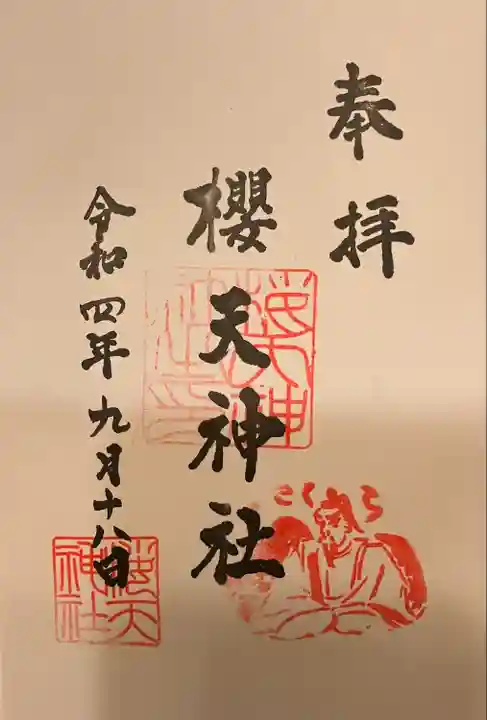 奉拝
櫻天神社
令和四年九月十八日
櫻天神社
さくら